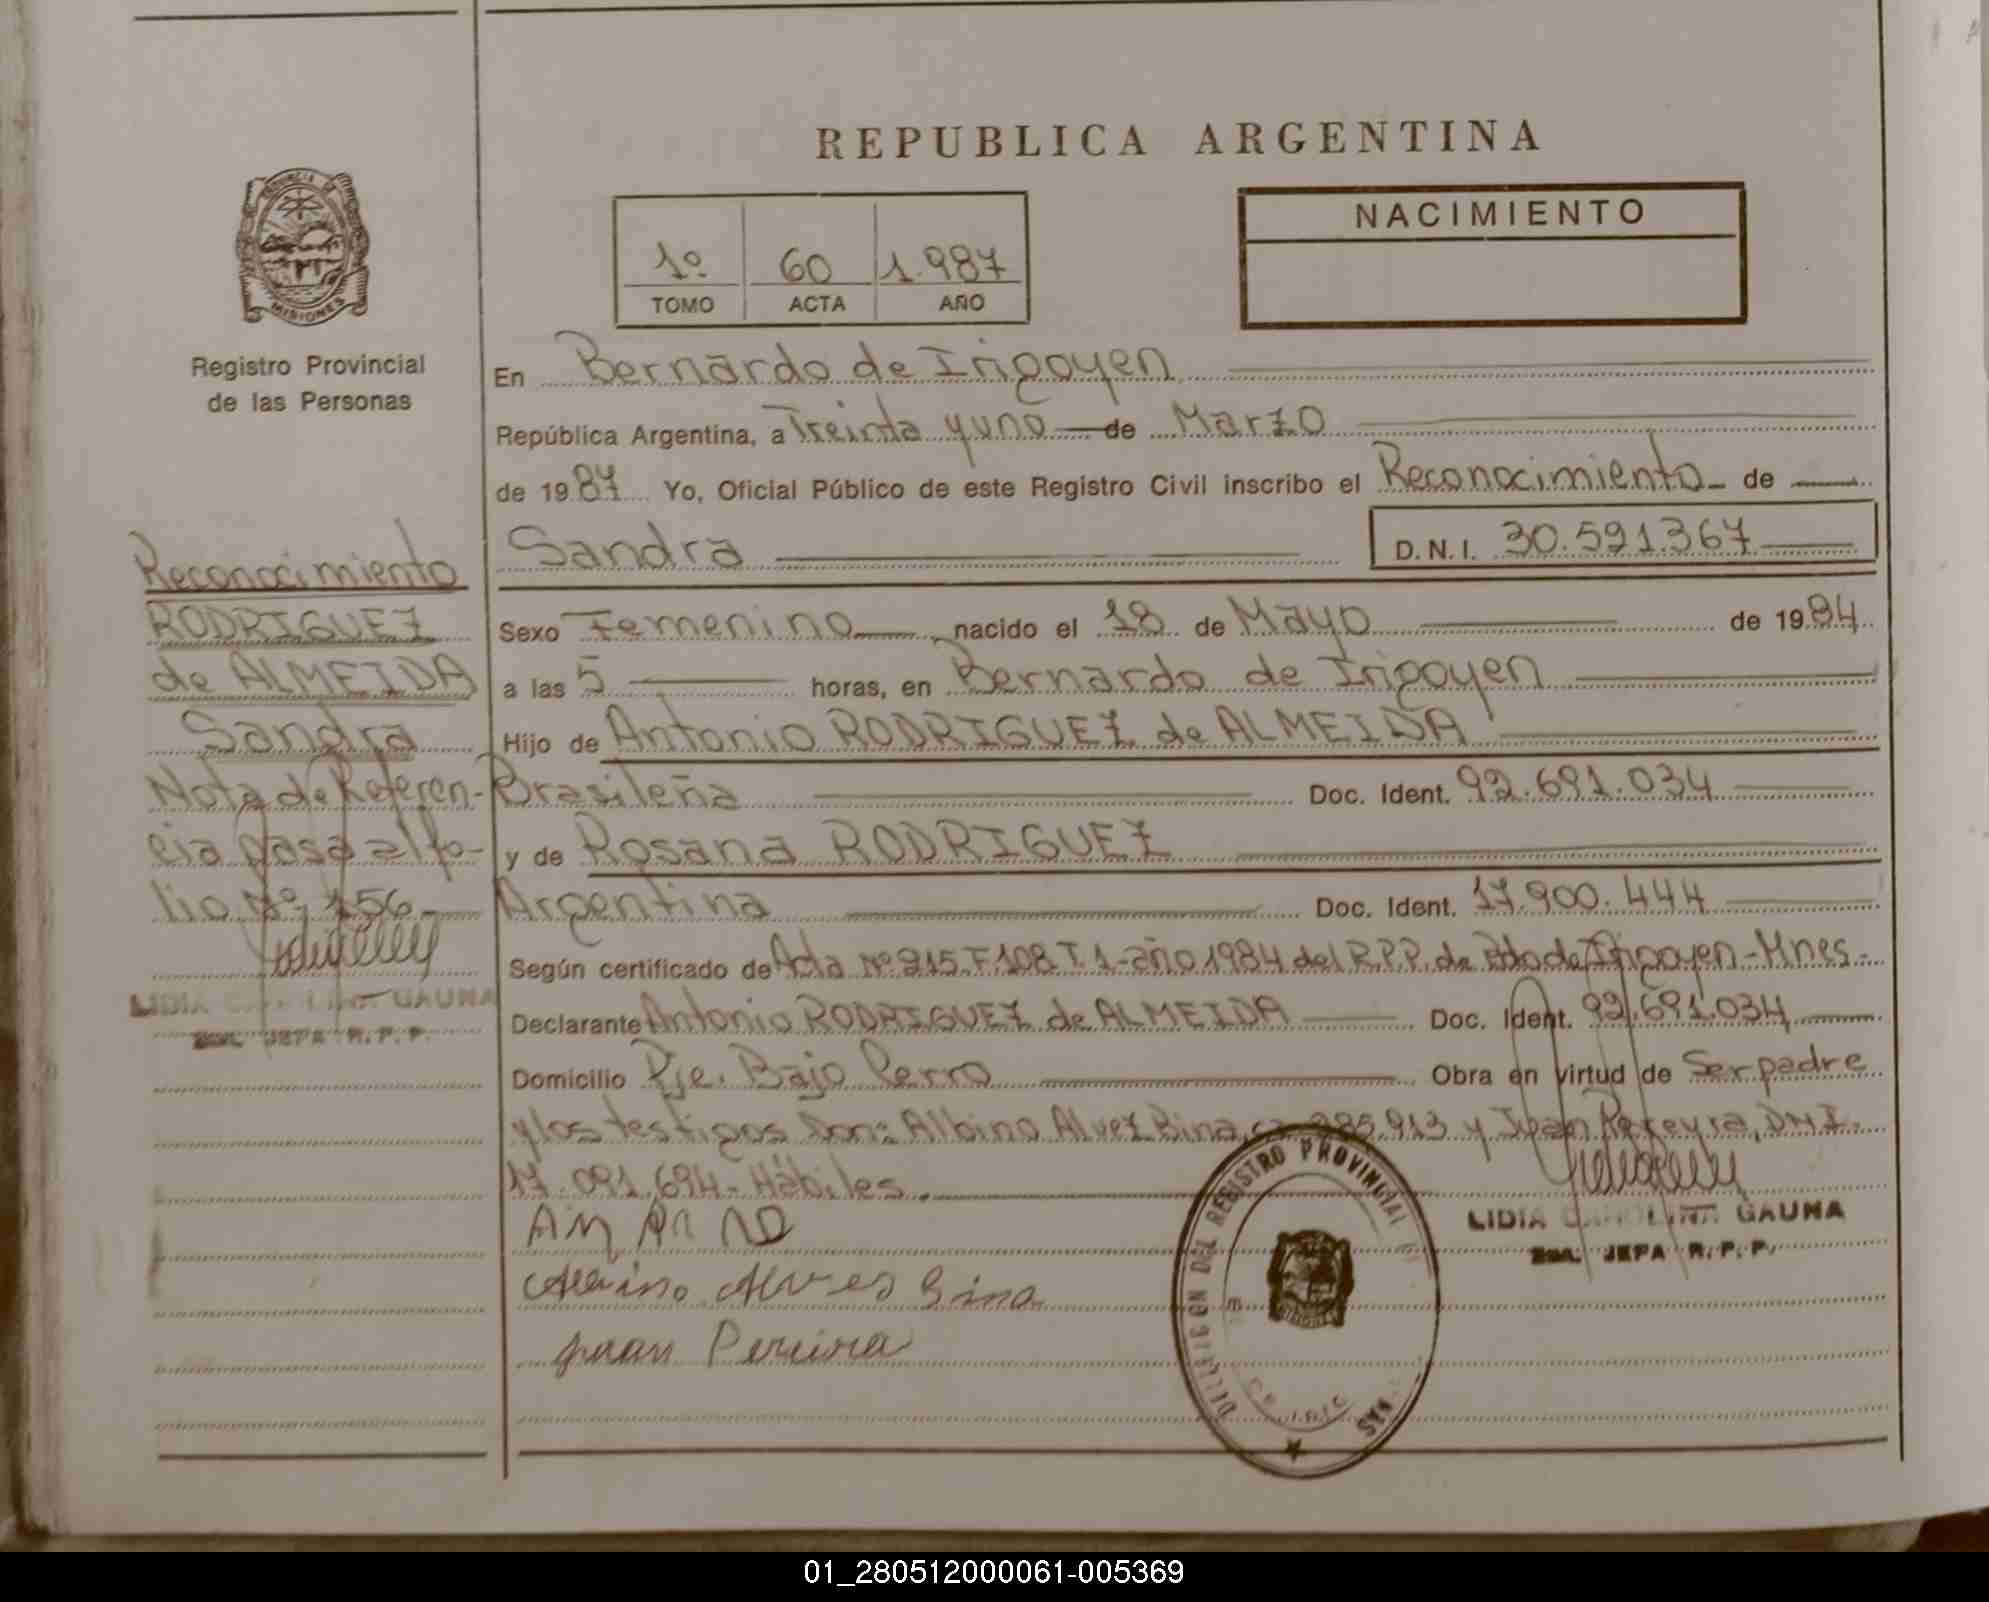 REPUBLICA ARGENTINA
1º 60 1.987
TOMO ACTA AÑO
NACIMIENTO
PROVINCIA DE
MISIONES
Registro Provincial
de las Personas
Reconocimiento
RODRIGUEZ
de ALMEIDA
Sandra
Nota de Referen-
cia pasa al fo-
lio Nº 156-
LIDIA GAUNA
JEFA R.P.P.
En Bernardo de Irigoyen
República Argentina, a Treinta y uno de Marzo
de 1987 Yo, Oficial Público de este Registro Civil inscribo el Reconocimiento- de
Sandra D.N.I. 30.591.367
Sexo Femenino nacido el 18 de Mayo de 1984
a las 5 horas, en Bernardo de Irigoyen
Hijo de Antonio RODRIGUEZ de ALMEIDA
Brasileña Doc. Ident. 92.691.034
y de Rosana RODRIGUEZ
Argentina Doc. Ident. 17.900.444
Según certificado de Acta Nº 215 F 108 T. 1-año 1984 del R.P.P. de Bdo de Irigoyen-Mnes-
Declarante Antonio RODRIGUEZ de ALMEIDA Doc. Ident. 92.691.034
Domicilio Pje. Bajo Cerro Obra en virtud de Ser padre
y los testigos Don: Albino Alvez Bina, 285.913 y Juan Pereyra, DNI.
17.091.694- Hábiles.
Albino Alves Bina
Juan Pereira
DELEGACION DEL REGISTRO PROVINCIAL
LIDIA CAROLINA GAUNA
JEFA R.P.P.
01_280512000061-005369